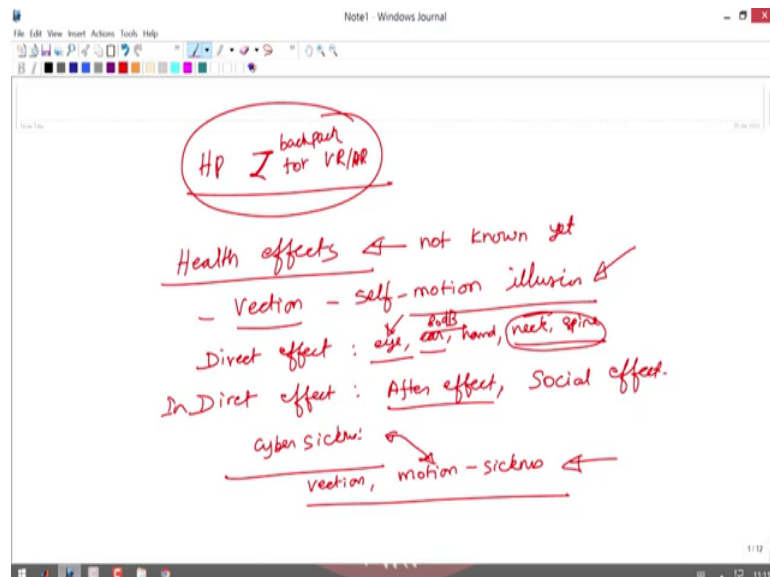 Note1 - Windows Journal
File Edit View Insert Actions Tools Help
B I
Note Title
HP Z backpack for VR/AR
Health effects ← not known yet
- Vection - self-motion illusion
80dB
Direct effect : eye, ear, hand, neck, spine
InDiret effect : After effect, Social effect.
Cyber sicknes
vection, motion-sicknes
1/12